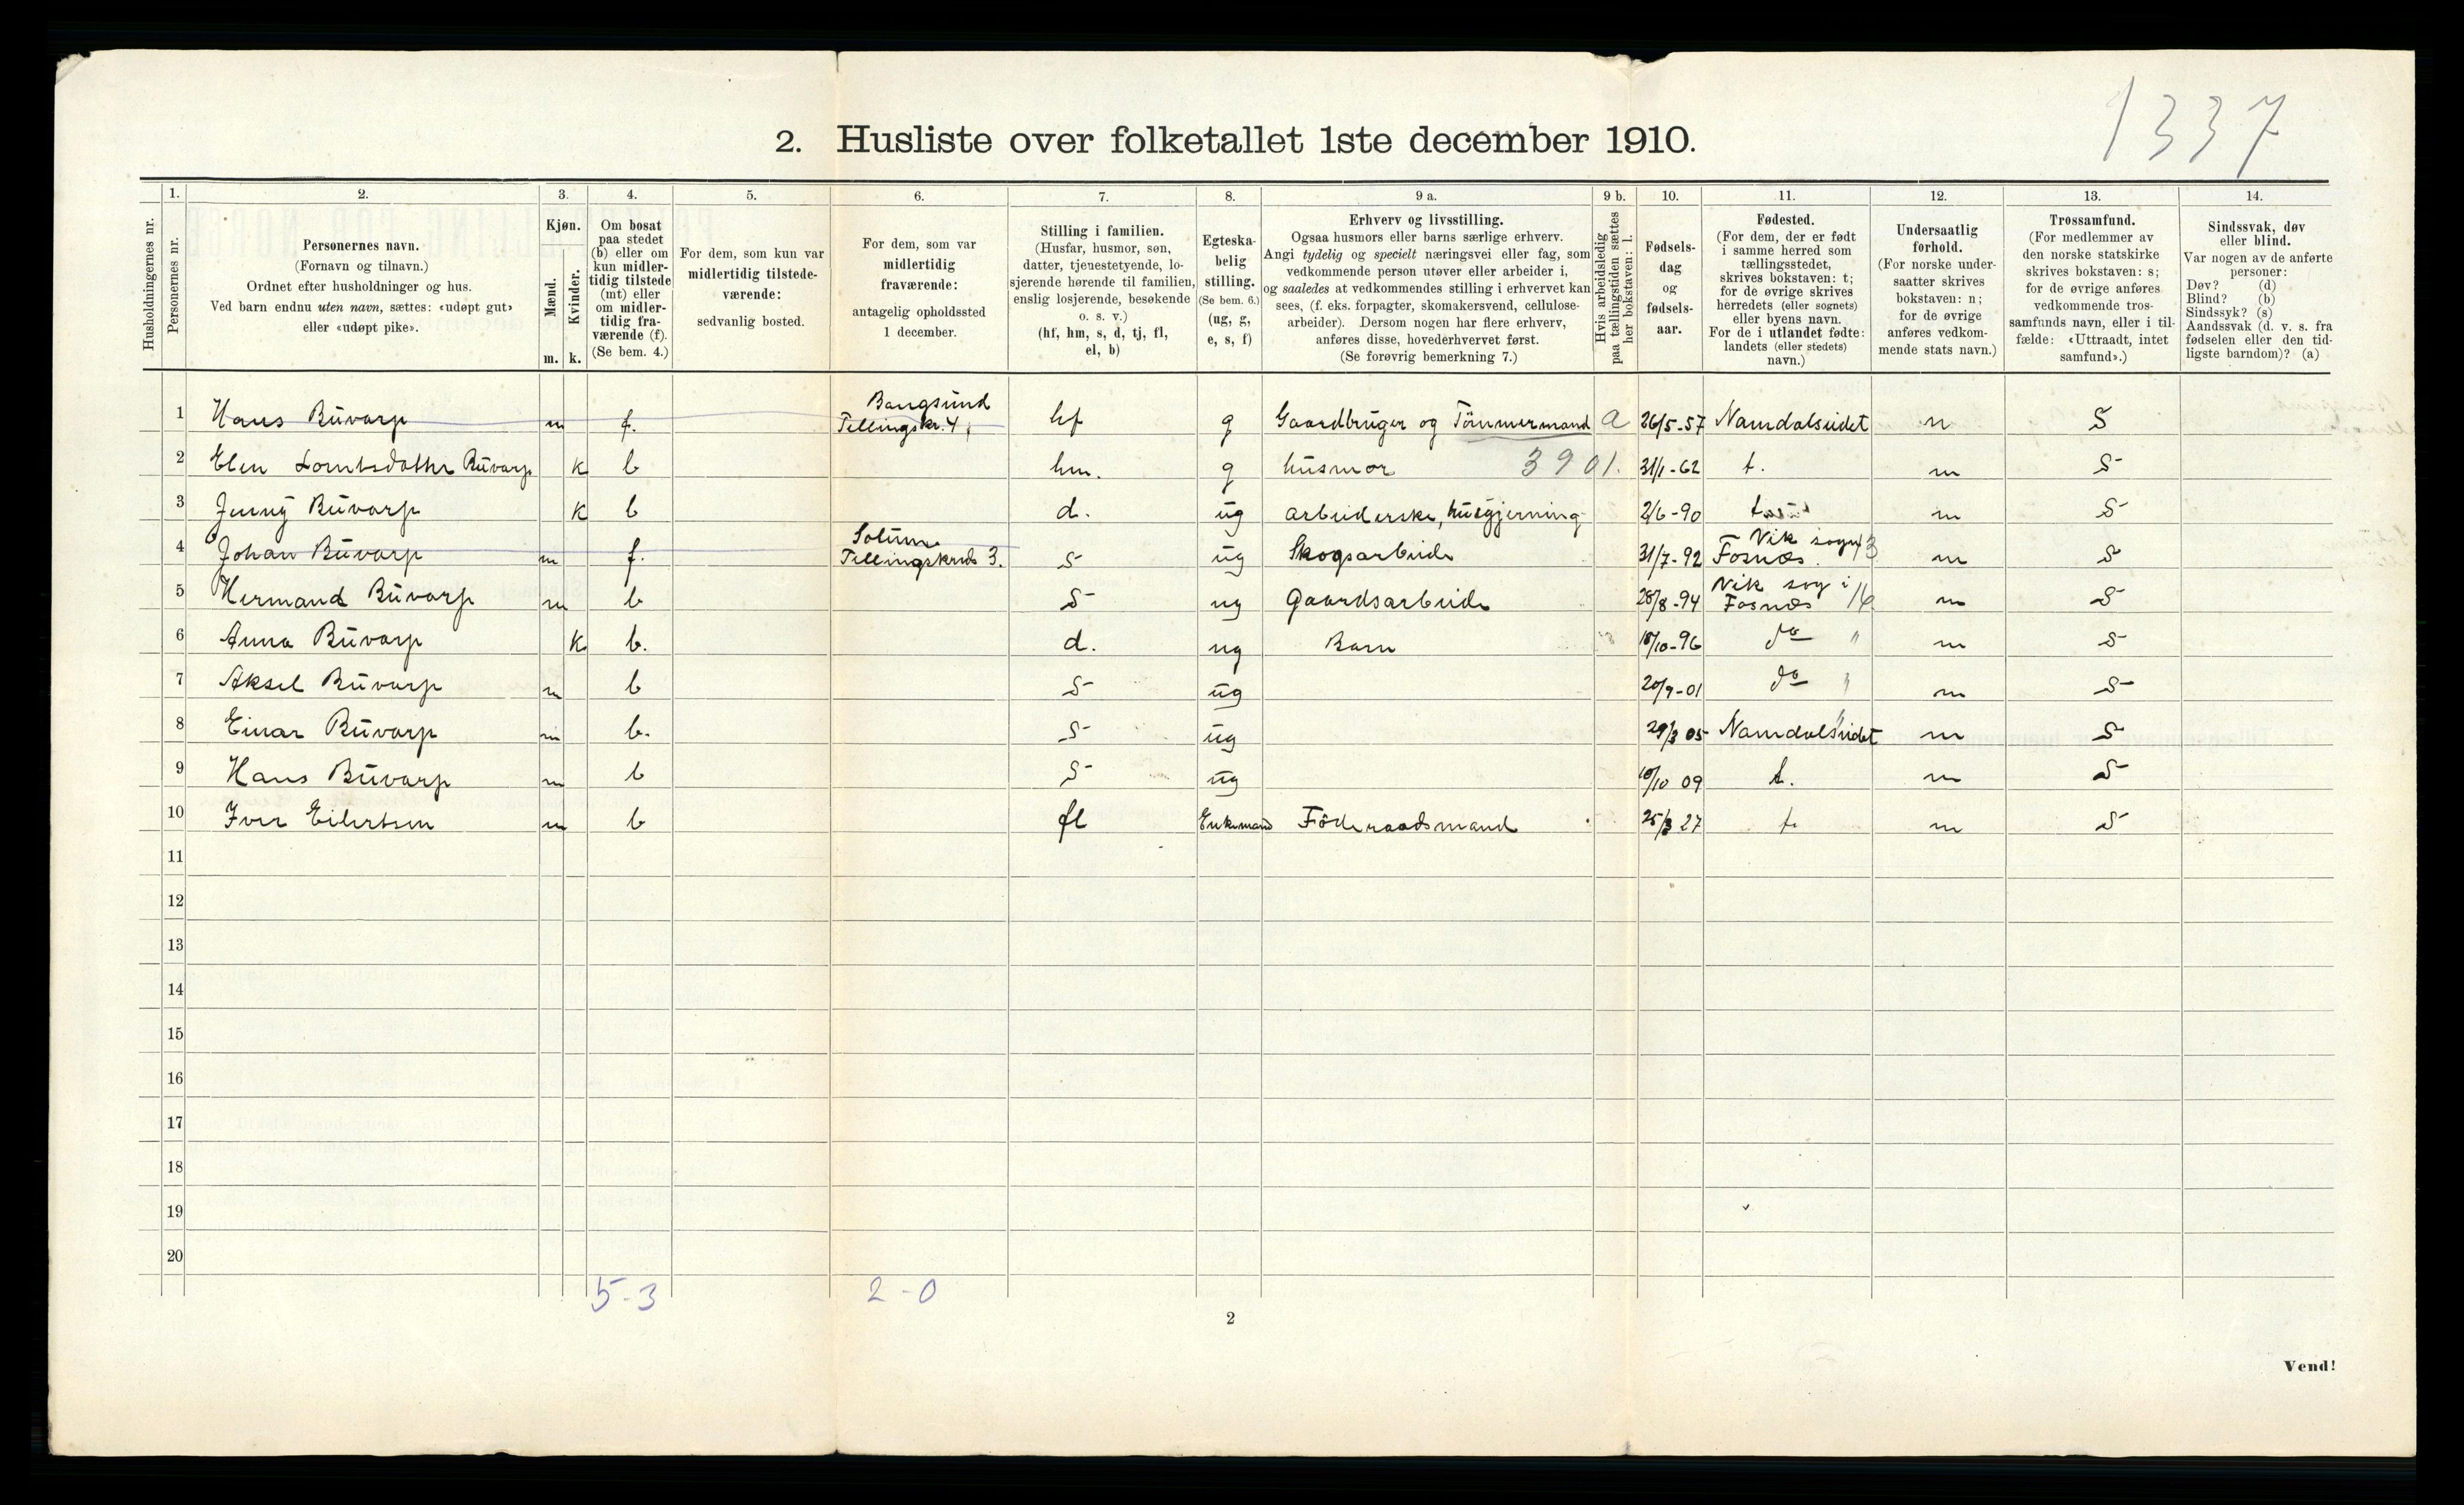 1337
2. Husliste over folketallet 1ste december 1910.
1. 2. 3. 4. 5. 6. 7. 8. 9 a. 9 b. 10. 11. 12. 13. 14.
Husholdningernes nr.
Personernes nr.
Personernes navn.
(Fornavn og tilnavn.)
Ordnet efter husholdninger og hus.
Ved barn endnu uten navn, sættes: «udøpt gut»
eller «udøpt pike».
Kjøn.
Mænd.
Kvinder.
m. k.
Om bosat
paa stedet
(b) eller om
kun midler-
tidig tilstede
(mt) eller
om midler-
tidig fra-
værende (f).
(Se bem. 4.)
For dem, som kun var
midlertidig tilstede-
værende:
sedvanlig bosted.
For dem, som var
midlertidig
fraværende:
antagelig opholdssted
1 december.
Stilling i familien.
(Husfar, husmor, søn,
datter, tjenestetyende, lo-
sjerende hørende til familien,
enslig losjerende, besøkende
o. s. v.)
(hf, hm, s, d, tj, fl,
el, b)
Egteska-
belig
stilling.
(Se bem. 6.)
(ug, g,
e, s, f)
Erhverv og livsstilling.
Ogsaa husmors eller barns særlige erhverv.
Angi tydelig og specielt næringsvei eller fag, som
vedkommende person utøver eller arbeider i,
og saaledes at vedkommendes stilling i erhvervet kan
sees, (f. eks. forpagter, skomakersvend, cellulose-
arbeider). Dersom nogen har flere erhverv,
anføres disse, hovederhvervet først.
(Se forøvrig bemerkning 7.)
Hvis arbeidsledig
paa tællingstiden sættes
her bokstaven: l.
Fødsels-
dag
og
fødsels-
aar.
Fødested.
(For dem, der er født
i samme herred som
tællingsstedet,
skrives bokstaven: t;
for de øvrige skrives
herredets (eller sognets)
eller byens navn.
For de i utlandet fødte:
landets (eller stedets)
navn.)
Undersaatlig
forhold.
(For norske under-
saatter skrives
bokstaven: n;
for de øvrige
anføres vedkom-
mende stats navn.)
Trossamfund.
(For medlemmer av
den norske statskirke
skrives bokstaven: s;
for de øvrige anføres
vedkommende tros-
samfunds navn, eller i til-
fælde: «Uttraadt, intet
samfund».)
Sindssvak, døv
eller blind.
Var nogen av de anførte
personer:
Døv? (d)
Blind? (b)
Sindssyk? (s)
Aandssvak (d. v. s. fra
fødselen eller den tid-
ligste barndom)? (a)
1 Hans Buvarp m f. Bangsund Tellingskr. 4 hf g Gaardbruger og Tömmermand a 26/5-57 Namdalseidet n S
2 Elen Lorntsdatter Buvarp k b hm. g husmor 3901. 31/1-62 t. n S
3 Jenny Buvarp k b d. ug arbeiderske, husgjerning 2/6-90 t n S
4 Johan Buvarp m f. Solum Tellingskreds 3. S ug Skogsarbeide 31/7-92 Vik sogn Fosnæs n S
5 Hermand Buvarp m b S ug Gaardsarbeide 28/8-94 Vik sog i Fosnæs n S
6 Anna Buvarp k b. d. ug Barn 18/10-96 do " n S
7 Aksel Buvarp m b S ug 20/9-01 do " n S
8 Einar Buvarp m b. S ug 29/3 05 Namdalseidet n S
9 Hans Buvarp m b S ug 10/10 09 t. n S
10 Iver Eilertsen m b fl Enkemand Föderaadsmand 25/3 27 t. n S
11
12
13
14
15
16
17
18
19
20
5-3 2-0
2
Vend!